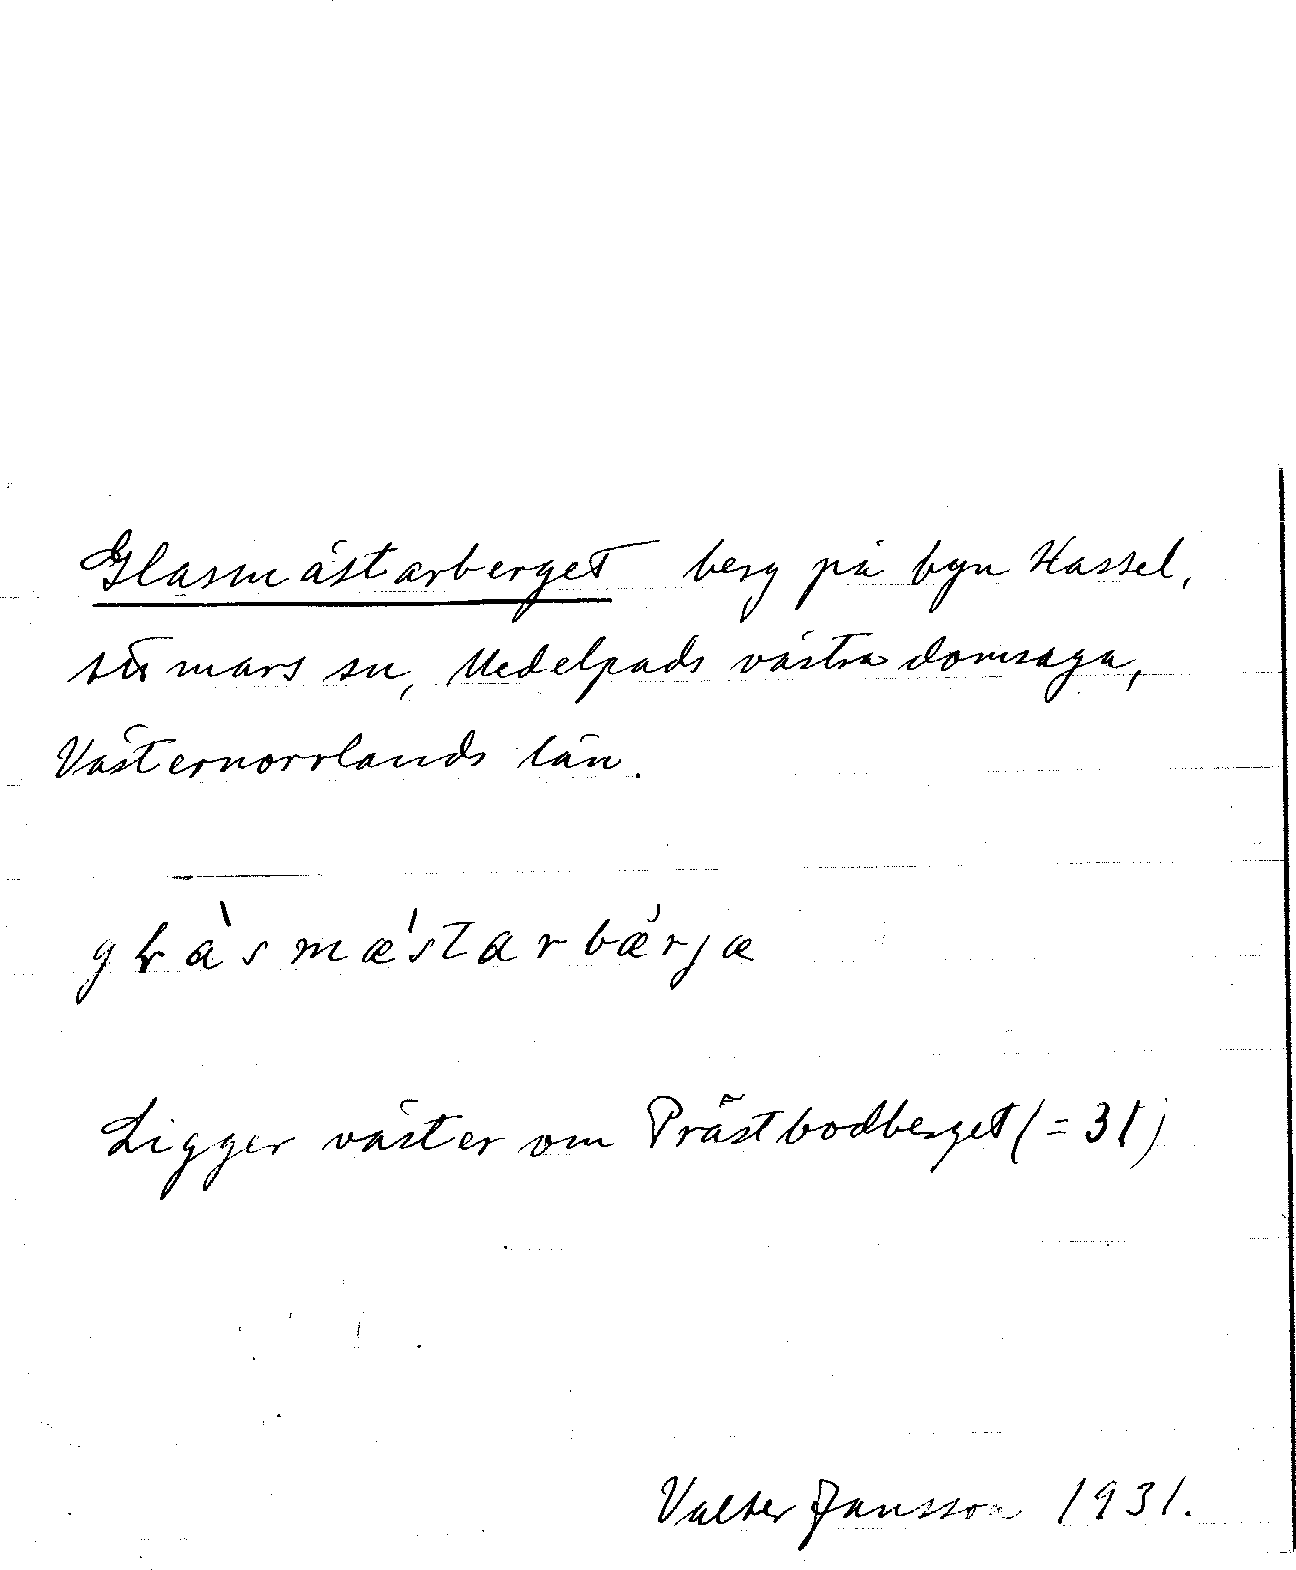 Glasmästarberget berg på byn Hassel,
Stömars sn, Medelpads västra domsaga,
Västernorrlands län.
gɬàsmæ̀starbæ̀rjæ
Ligger väster om Prästbodberget (= 31)
Valter Jansson 1931.